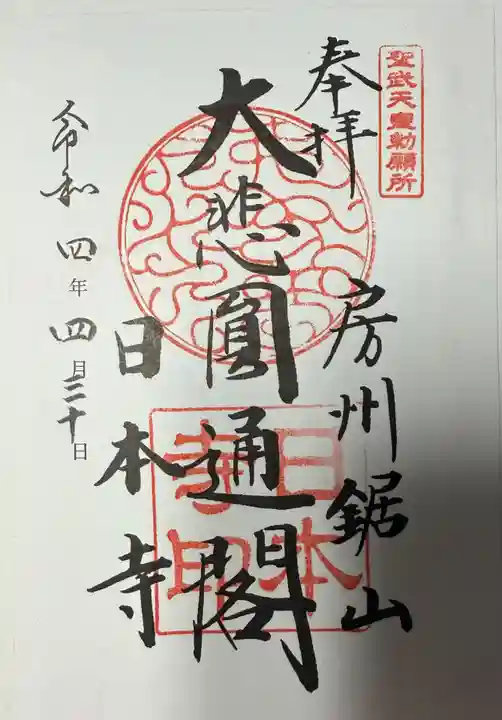 聖武天皇勅願所
奉拝
房州鋸山
大悲圓通閣
日本寺
日本寺印
令和四年四月三十日